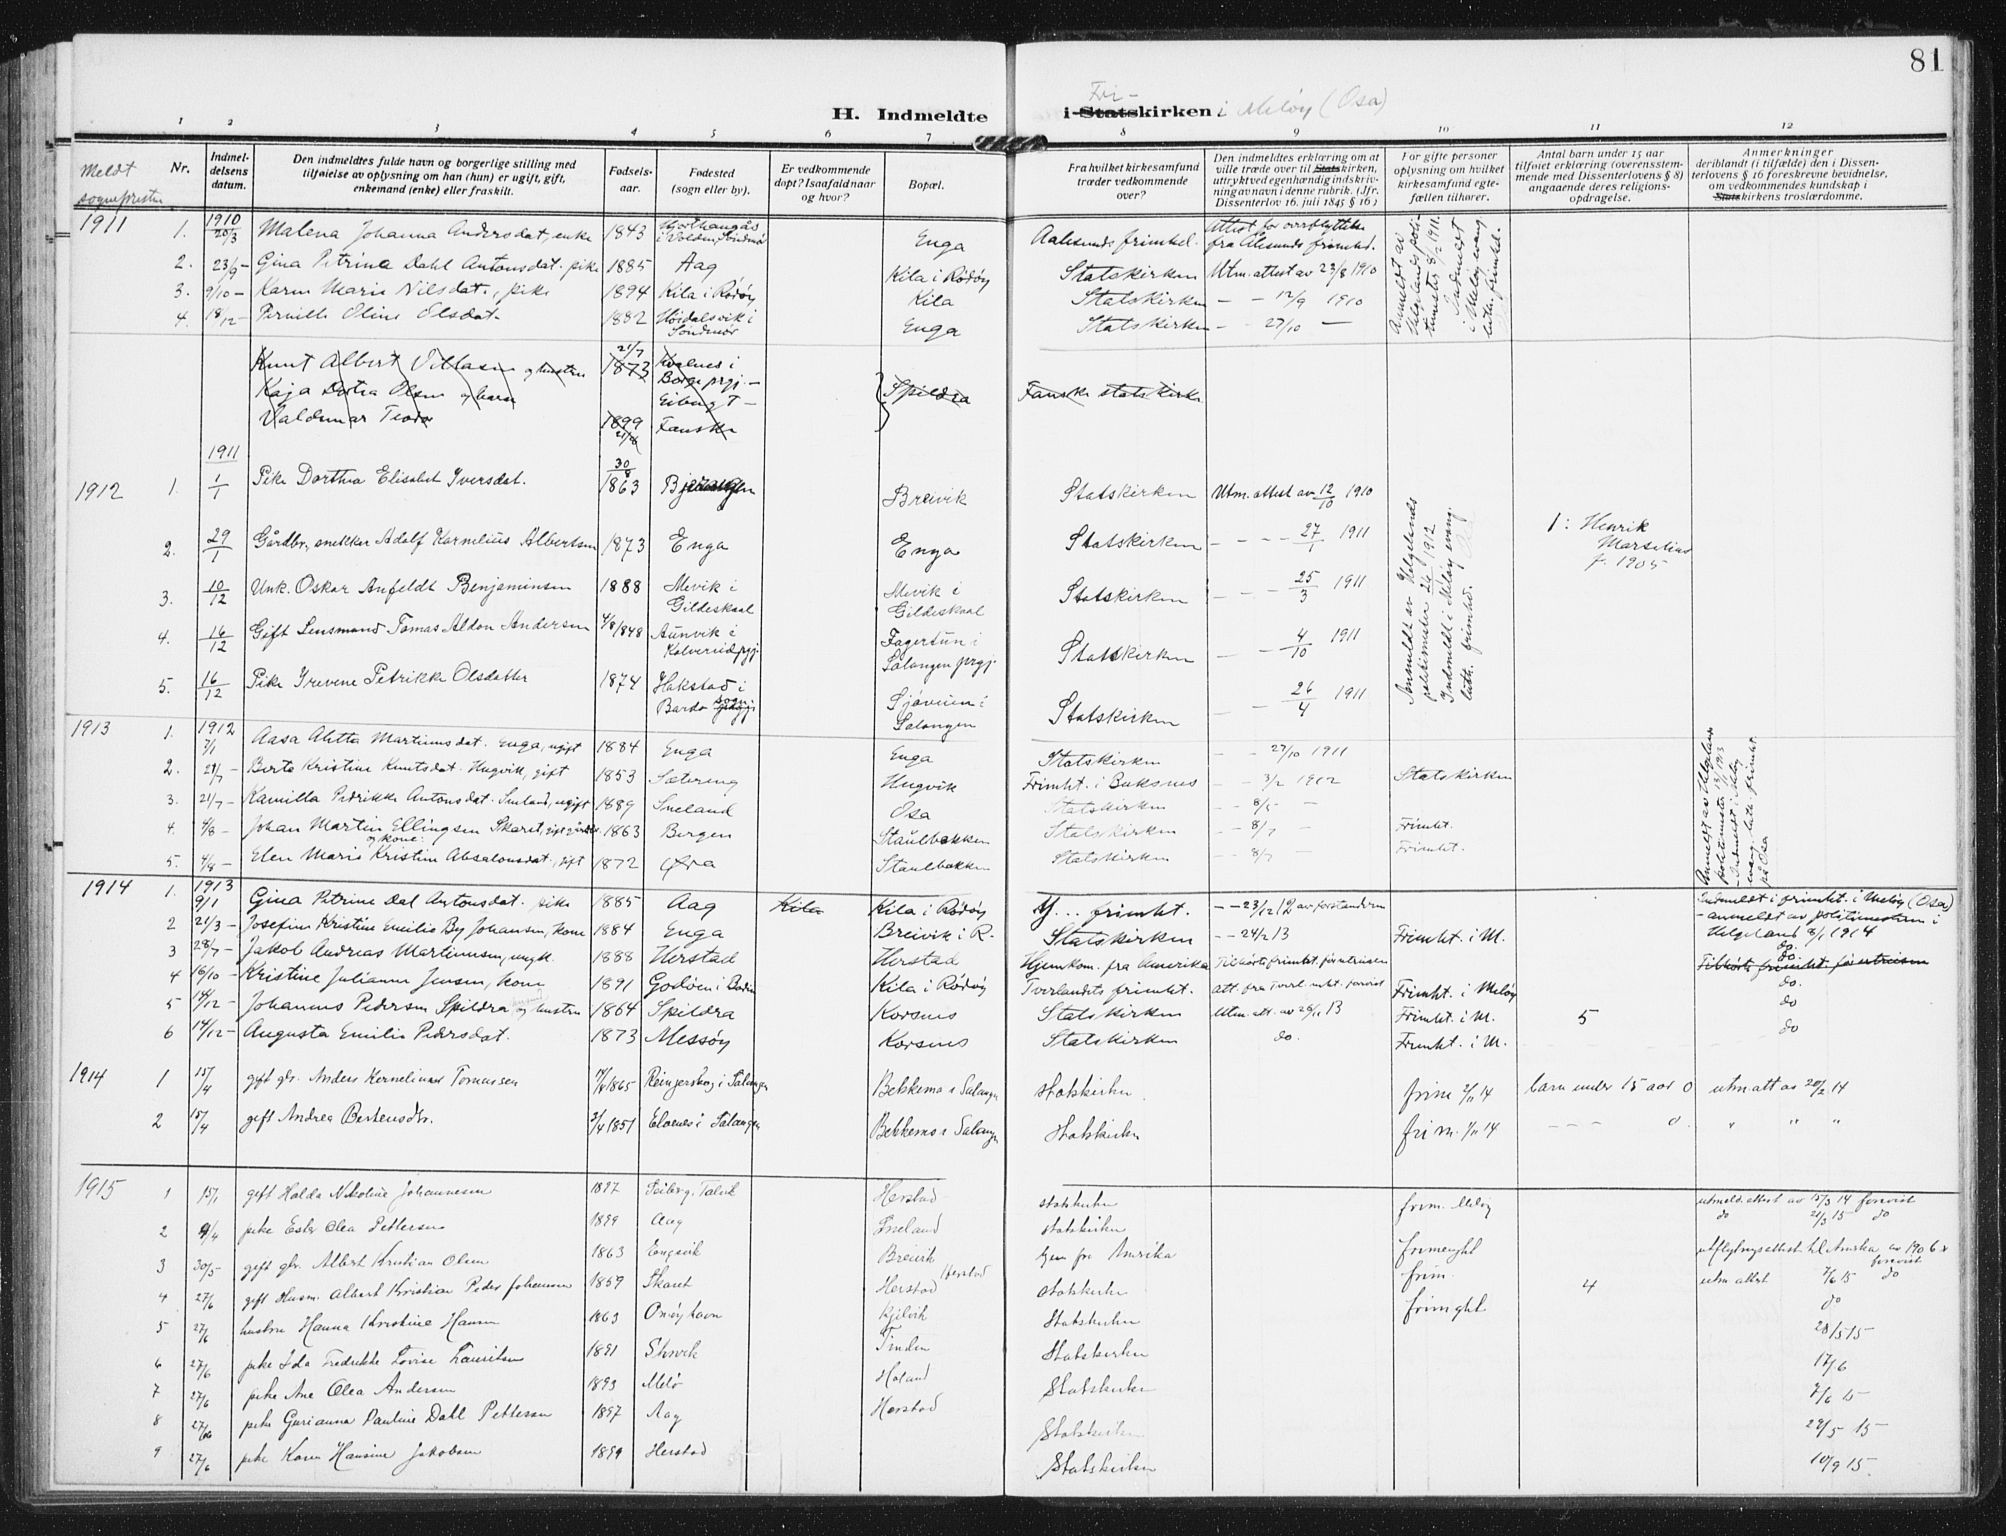 81
H. Indmeldte i Statskirken Fri- i Meløy (Osa)
1 2 3 4 5 6 7 8 9 10 11 12
Meldt sognepresten
Nr.
Indmeldelsens datum.
Den indmeldtes fulde navn og borgerlige stilling med tilføielse av oplysning om han (hun) er ugift, gift, enkemand (enke) eller fraskilt.
Fødselsaar.
Fødested (sogn eller by).
Er vedkommende døpt? I saa fald naar og hvor?
Bopæl.
Fra hvilket kirkesamfund træder vedkommende over?
Den indmeldtes erklæring om at ville træde over til Statskirken, uttrykt ved egenhændig indskrivning av navn i denne rubrik. (Jfr. Dissenterlov 16. juli 1845 § 16)
For gifte personer oplysning om hvilket kirkesamfund egtefællen tilhører.
Antal barn under 15 aar tilføiet erklæring (overensstemmende med Dissenterlovens § 8) angaaende deres religionsopdragelse.
Anmerkninger deriblandt (i tilfælde) den i Dissenterlovens § 16 foreskrevne bevidnelse, om vedkommendes kundskap i Statskirkens troslærdomme.
1911 1. 1910 20/3 Malena Johanna Andersdat, enke 1843 Hjorthaugås i Volden Søndmør Enga Aalesunds frimkel. Attest for overflyttelse fra Ålesunds frimhd.
2. 23/9 – Gina Petrine Dahl Antonsdat. pike 1885 Aag Kila i Rødøy Statskirken Utm. attest av 23/8 1910
3. 9/10 – Karen Marie Nilsdat., pike 1894 Kila i Rødøy Kila Statskirken – – 12/9 1910
4. 18/12 – Pernille Oline Olsdat. 1882 Høidalsvik i Søndmør Enga Statskirken – – 27/10 –
Anmeldt av Helgelands politimester 8/2 1911. Indmeldt i Meløy evang. luth. frimkel.
Knut Albert Villasen og hustru 21/7 1873 Kvalnes i Borge prgj. –
Kaja Dortea Olsen og barn Spildra Fauske statskirke
Valdemar Teodor 1899 21/8 Fauske
1911
1912 1. 1/1 Pike Dorthea Elisabet Iversdat. 30/8 1863 Breivik Statskirken Utm. attest av 12/10 1910
2. 29/1 Gårdbr. snekker Adolf Kornelius Albertsen 1873 Enga Enga Statskirken – – – 27/1 1911 1: Henrik Marselius f. 1905
3. 10/12 Unk. Oskar Anfeldt Benjaminsen 1888 Mevik i Gildeskaal Mevik i Gildeskaal Statskirken – – – 25/3 1911
4. 16/12 Gift Lensmand Tomas Aldon Andersen 4/8 1848 Aunvik i Kolvereid prgj. Fagertun i Salangen prgj. Statskirken – – 4/10 1911
5. 16/12 Pike Irevene Petrikke Olsdatter 1874 Hakstad i Bardo sogn Sjøveien i Salangen Statskirken – – 26/4 1911
Anmeldt av Helgelands politimester 24/2 1912 Indmeldt i Meløy evang. luth. frimhd.
1913 1. 1912 7/1 Aasa Alitta Martinusdat. Enga, ugift 1884 Enga Enga Statskirken – – 27/10 1911
2. 21/7 – Berte Kristine Knutsdat. Hugvik, gift 1853 Sætering Hugvik Frimht. i Buksnes – – 3/2 1912 Statskirken
3. 21/7 – Kamilla Petrikke Antonsdat. Sneland, ugift 1889 Sneland Osa Statskirken – – 8/5 –
4. 4/8 – Johan Martin Ellingsen Skaret, gift gårdbr. og kone: 1863 Bergen Staulbakken Statskirken – – 8/7 – Frimht.
5. 4/8 – Elen Marie Kristine Absalonsdat, gift 1872 Øra Staulbakken Statskirken – – 8/7 – Frimht.
Anmeldt av Helgelands politimester 13/1 1913 – Indmeldt i Meløy evang. luth. frimht. på Osa
1914 1. 1913 9/1 Gina Petrine Dal Antonsdat. pike 1885 Aag Kila Kila i Rødøy frimht. – – 23/12 12 av forstanderen Indmeldt i frimht. i Meløy (Osa) – anmeldt av politimesteren i Helgeland 8/1 1914
2 21/3 – Josefine Kristine Emilie By Johansen, kone 1884 Enga Breivik i R. Statskirken – – 24/2 13 Frimht. i M. do.
3 28/7 – Jakob Andreas Martinusen, ungk. 1888 Herstad Herstad Hjemkom. fra Amerika Tilhørte frimht. før utreisen Tilhørte frimht. før utreisen do.
4 16/10 – Kristine Julianne Jensen, kone 1891 Godøen i Bodin Kila i Rødøy Tverlandets frimht. Att. fra Tverl. mht. forevist Frimht. i Meløy do.
5 14/12 – Johannes Pedersen Spildra og hustru 1864 Spildra Korsnes Statskirken Utm. att. av 26/11 13 Frimht. i M. 5 do
6 14/12 – Augusta Emilie Pedersdat. 1873 Messøy Korsnes Statskirken do. Frimht. i M. do
1914 1 15/4 gift gbr. Anders Kornelius Tomassen 1865 Reingersborg i Salangen Bekkemo i Salangen Statskirken frim 2/11 14 barn under 15 aar 0 utm att av 20/2 14
2 15/4 gift Andrea Berhensdtr. 2/4 1857 Elvenes i Salangen Bekkemo i Salangen Statskirken frim. 2/11 14 – – – 0. " " "
1915 1 15/1 gift Halda Nikoline Johannesen 1887 Talvik Herstad statskirken frim. Meløy utmeld. attest av 15/3 14 forevist
2 9/4 pike Ester Olea Pettersen 1899 Aag Sneland statskirken do 21/3 15 do
3 30/5 gift gbr. Albert Kristian Olsen 1863 Engavik Breivik hjem fra Amerika frimenght utflytningsattest til Amerika av 1906 forevist
4 27/6 gift Husm. Albert Kristian Peder Johansen 1859 Skaret Herstad Herstad statskirken frim. 4 utm attest 7/6 15 do
5 27/6 hustru Hanna Kristine Hansen 1863 Omøyhavn Kjelvik Statskirken frimght do
6 27/6 pike Ida Fredrikke Lovise Lauritsen 1891 Skavik Tinden Statskirken 28/5 15
7 27/6 pike Ane Olea Andersen 1893 Melø Haland Statskirken 17/6
8 27/6 pike Gurianna Pauline Dahl Pettersen 1897 Aag Herstad Statskirken 7/6 15
9 27/6 pike Karen Hansine Jakobsen 1899 Herstad Statskirken 29/5 15
10/9 15.